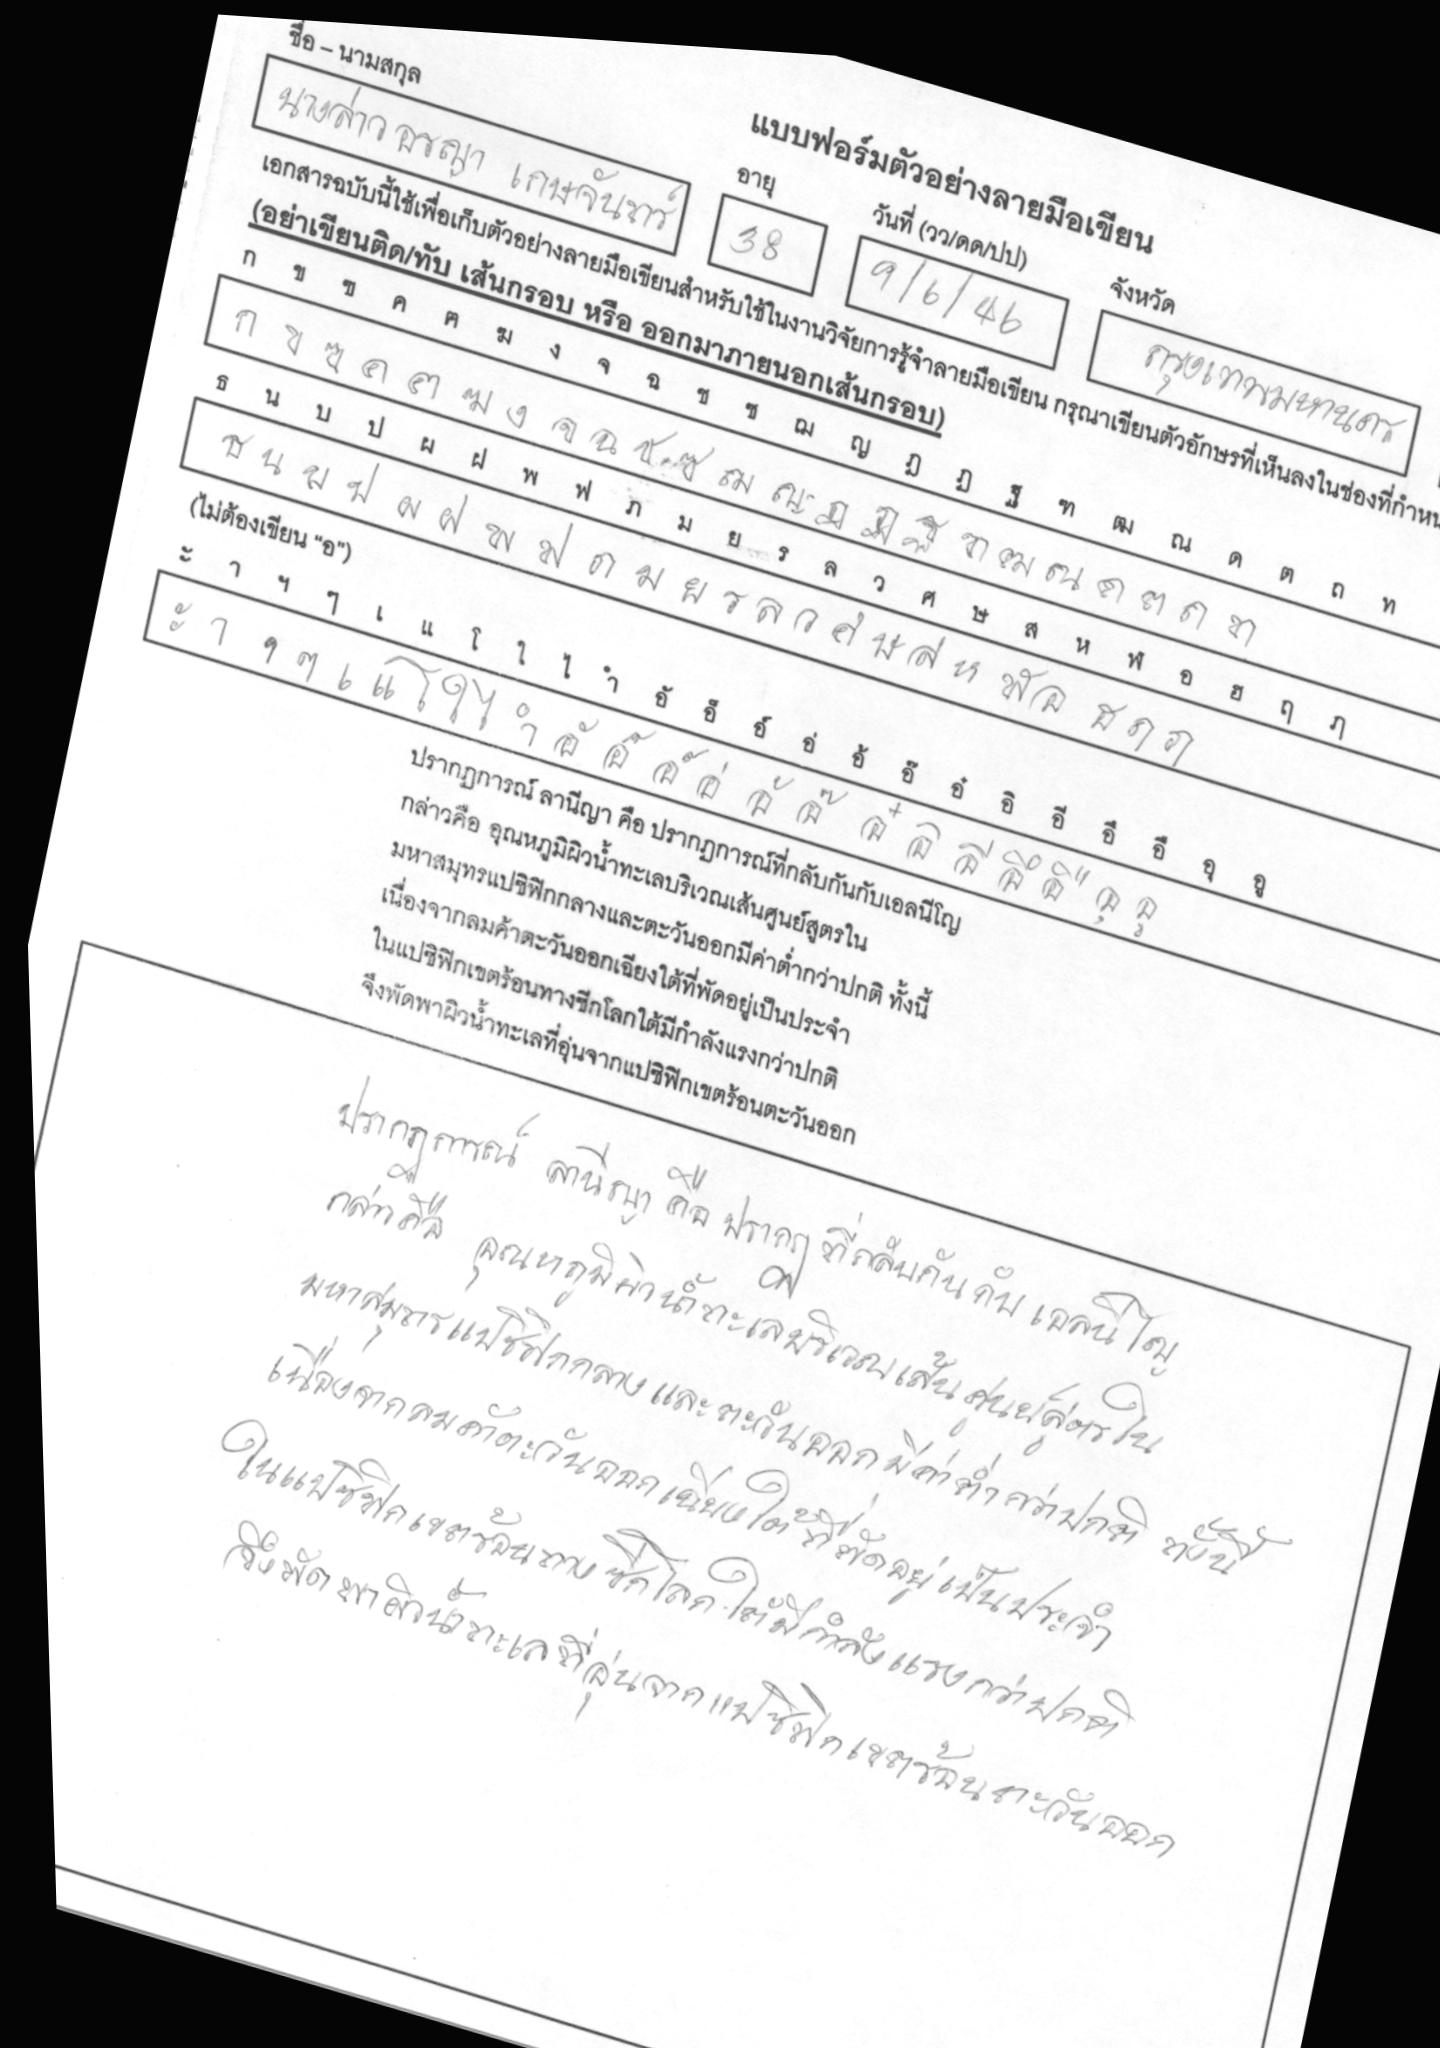 แบบฟอร์มตัวอย่างลายมือเขียน
ชื่อ – นามสกุล อายุ วันที่ (วว/ดด/ปป) จังหวัด
นางสาว อรญา เกษจันทร์ 38 9/6/46 กรุงเทพมหานคร
เอกสารฉบับนี้ใช้เพื่อเก็บตัวอย่างลายมือเขียนสำหรับใช้ในงานวิจัยการรู้จำลายมือเขียน กรุณาเขียนตัวอักษรที่เห็นลงในช่องที่กำหน
(อย่าเขียนติด/ทับ เส้นกรอบ หรือ ออกมาภายนอกเส้นกรอบ)
ก ข ฃ ค ฅ ฆ ง จ ฉ ช ซ ฌ ญ ฎ ฏ ฐ ฑ ฒ ณ ด ต ถ ท
ก ข ฃ ค ฅ ฆ ง จ ฉ ช ซ ฌ ญ ฎ ฏ ฐ ฑ ฒ ณ ด ต ถ ท
ธ น บ ป ผ ฝ พ ฟ ภ ม ย ร ล ว ศ ษ ส ห ฬ อ ฮ ฤ ฦ
ธ น บ ป ผ ฝ พ ฟ ภ ม ย ร ล ว ศ ษ ส ห ฬ อ ฮ ฤ ฦ
(ไม่ต้องเขียน “อ”)
ะ ้ า ฯ ๆ เ แ โ ใ ไ ำ อั อ็ อ์ อ่ อ้ อ๊ อ๋ อิ อี อึ อือ อุ อู
ะ ้ า ฯ ๆ เ แ โ ใ ไ ำ อั อ็ อ์ อ่ อ้ อ๊ อ๋ อิ อี อึ อื อุ อู
ปรากฏการณ์ ลานีญา คือ ปรากฏการณ์ที่กลับกันกับเอลนีโญ
กล่าวคือ อุณหภูมิผิวน้ำทะเลบริเวณเส้นศูนย์สูตรใน
มหาสมุทรแปซิฟิกกลางและตะวันออกมีค่าต่ำกว่าปกติ ทั้งนี้
เนื่องจากลมค้าตะวันออกเฉียงใต้ที่พัดอยู่เป็นประจำ
ในแปซิฟิกเขตร้อนทางซีกโลกใต้มีกำลังแรงกว่าปกติ
จึงพัดพาผิวน้ำทะเลที่อุ่นจากแปซิฟิกเขตร้อนตะวันออก
ปรากฏการณ์ ลานีญา คือ ปรากฏ ที่กลับกัน กับ เอลนีโญ
กล่าวคือ อุณหภูมิผิวน้ำทะเลบริเวณเส้นศูนย์สูตรใน
มหาสมุทรแปซิฟิกกลางและตะวันออกมีค่าต่ำกว่าปกติ ทั้งนี้
เนื่องจากลมค้าตะวันออกเฉียงใต้ที่พัดอยู่เป็นประจำ
ในแปซิฟิกเขตร้อนทางซีกโลกใต้มีกำลังแรงกว่าปกติ
จึงพัดพาผิวน้ำทะเลที่อุ่นจากแปซิฟิกเขตร้อนตะวันออก